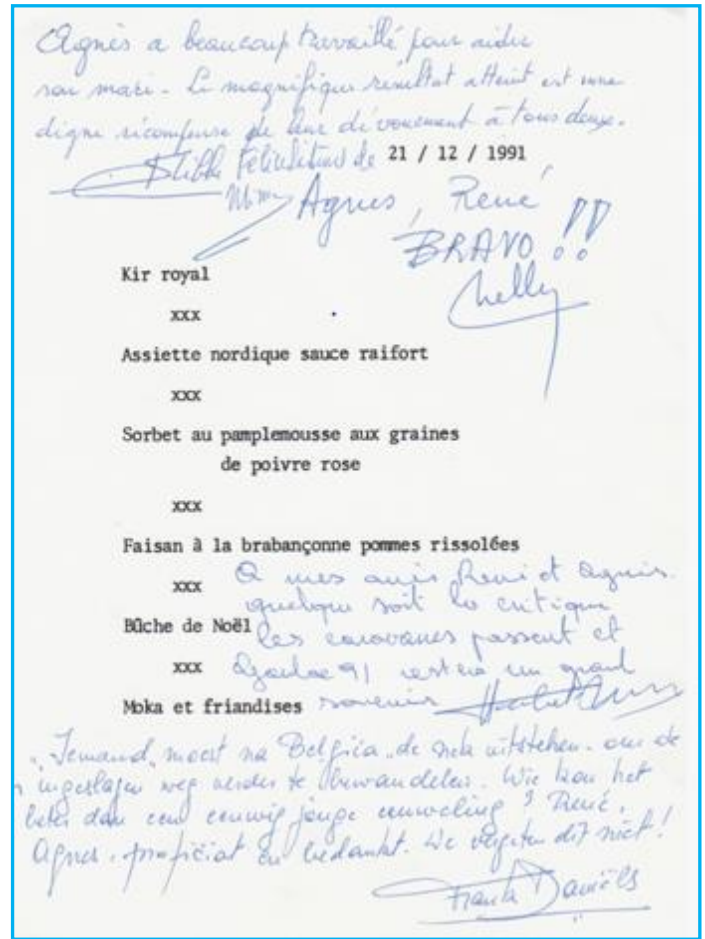 Agnès a beaucoup travaillé pour aider
son mari - Le magnifique résultat atteint est une
digne récompense de leur dévouement à tous deux.
Félicitations de 21 / 12 / 1991
Mme Agnes, René,
BRAVO !!
Nelly
Kir royal
xxx
Assiette nordique sauce raifort
xxx
Sorbet au pamplemousse aux graines
de poivre rose
xxx
Faisan à la brabançonne pommes rissolées
xxx
A mes amis René et Agnès.
quelque soit la critique
Bûche de Noël
les caravanes passent et
xxx
91 restera un grand
Moka et friandises
souvenir
"Iemand" moest na Belgica de nek uitsteken om de
ingeslagen weg verder te bewandelen. Wie kon het
beter dan een eeuwig jonge eeuweling? René,
Agnes, proficiat en bedankt. We vergeten dit niet!
Frank Daniëls